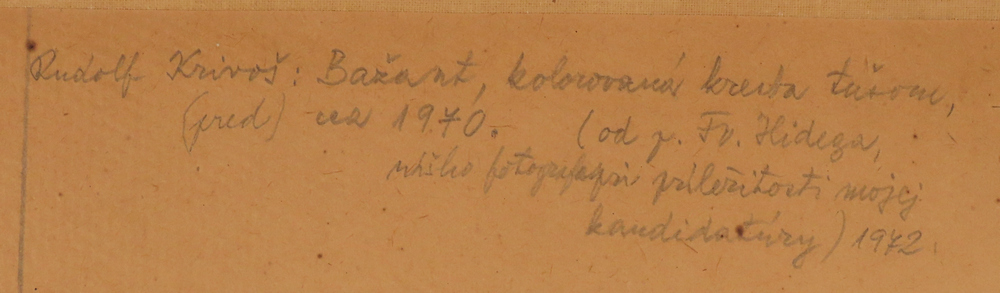 Rudolf Krivoš: Bažant, kolorovaná kresba tušom,
(pred) cca 1970. (od p. Fr. Hidega,
nášho fotografa pri príležitosti mojej
kandidatúry) 1972